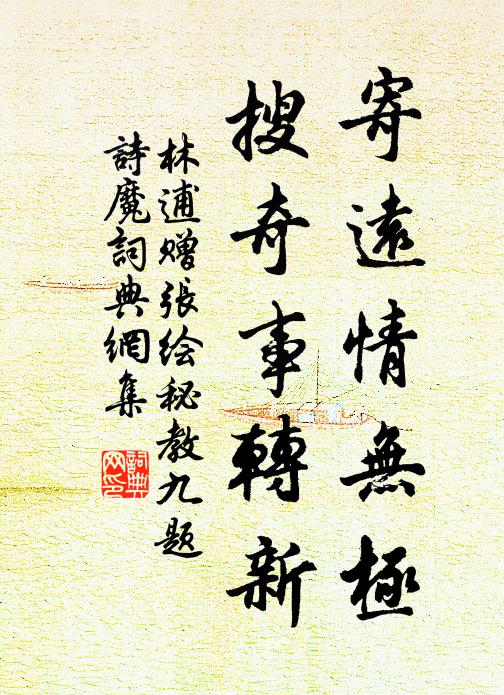 寄遠情無極
搜奇事轉新
林逋赠張绘秘教九题
詩魔詞典網集
詞典
网印